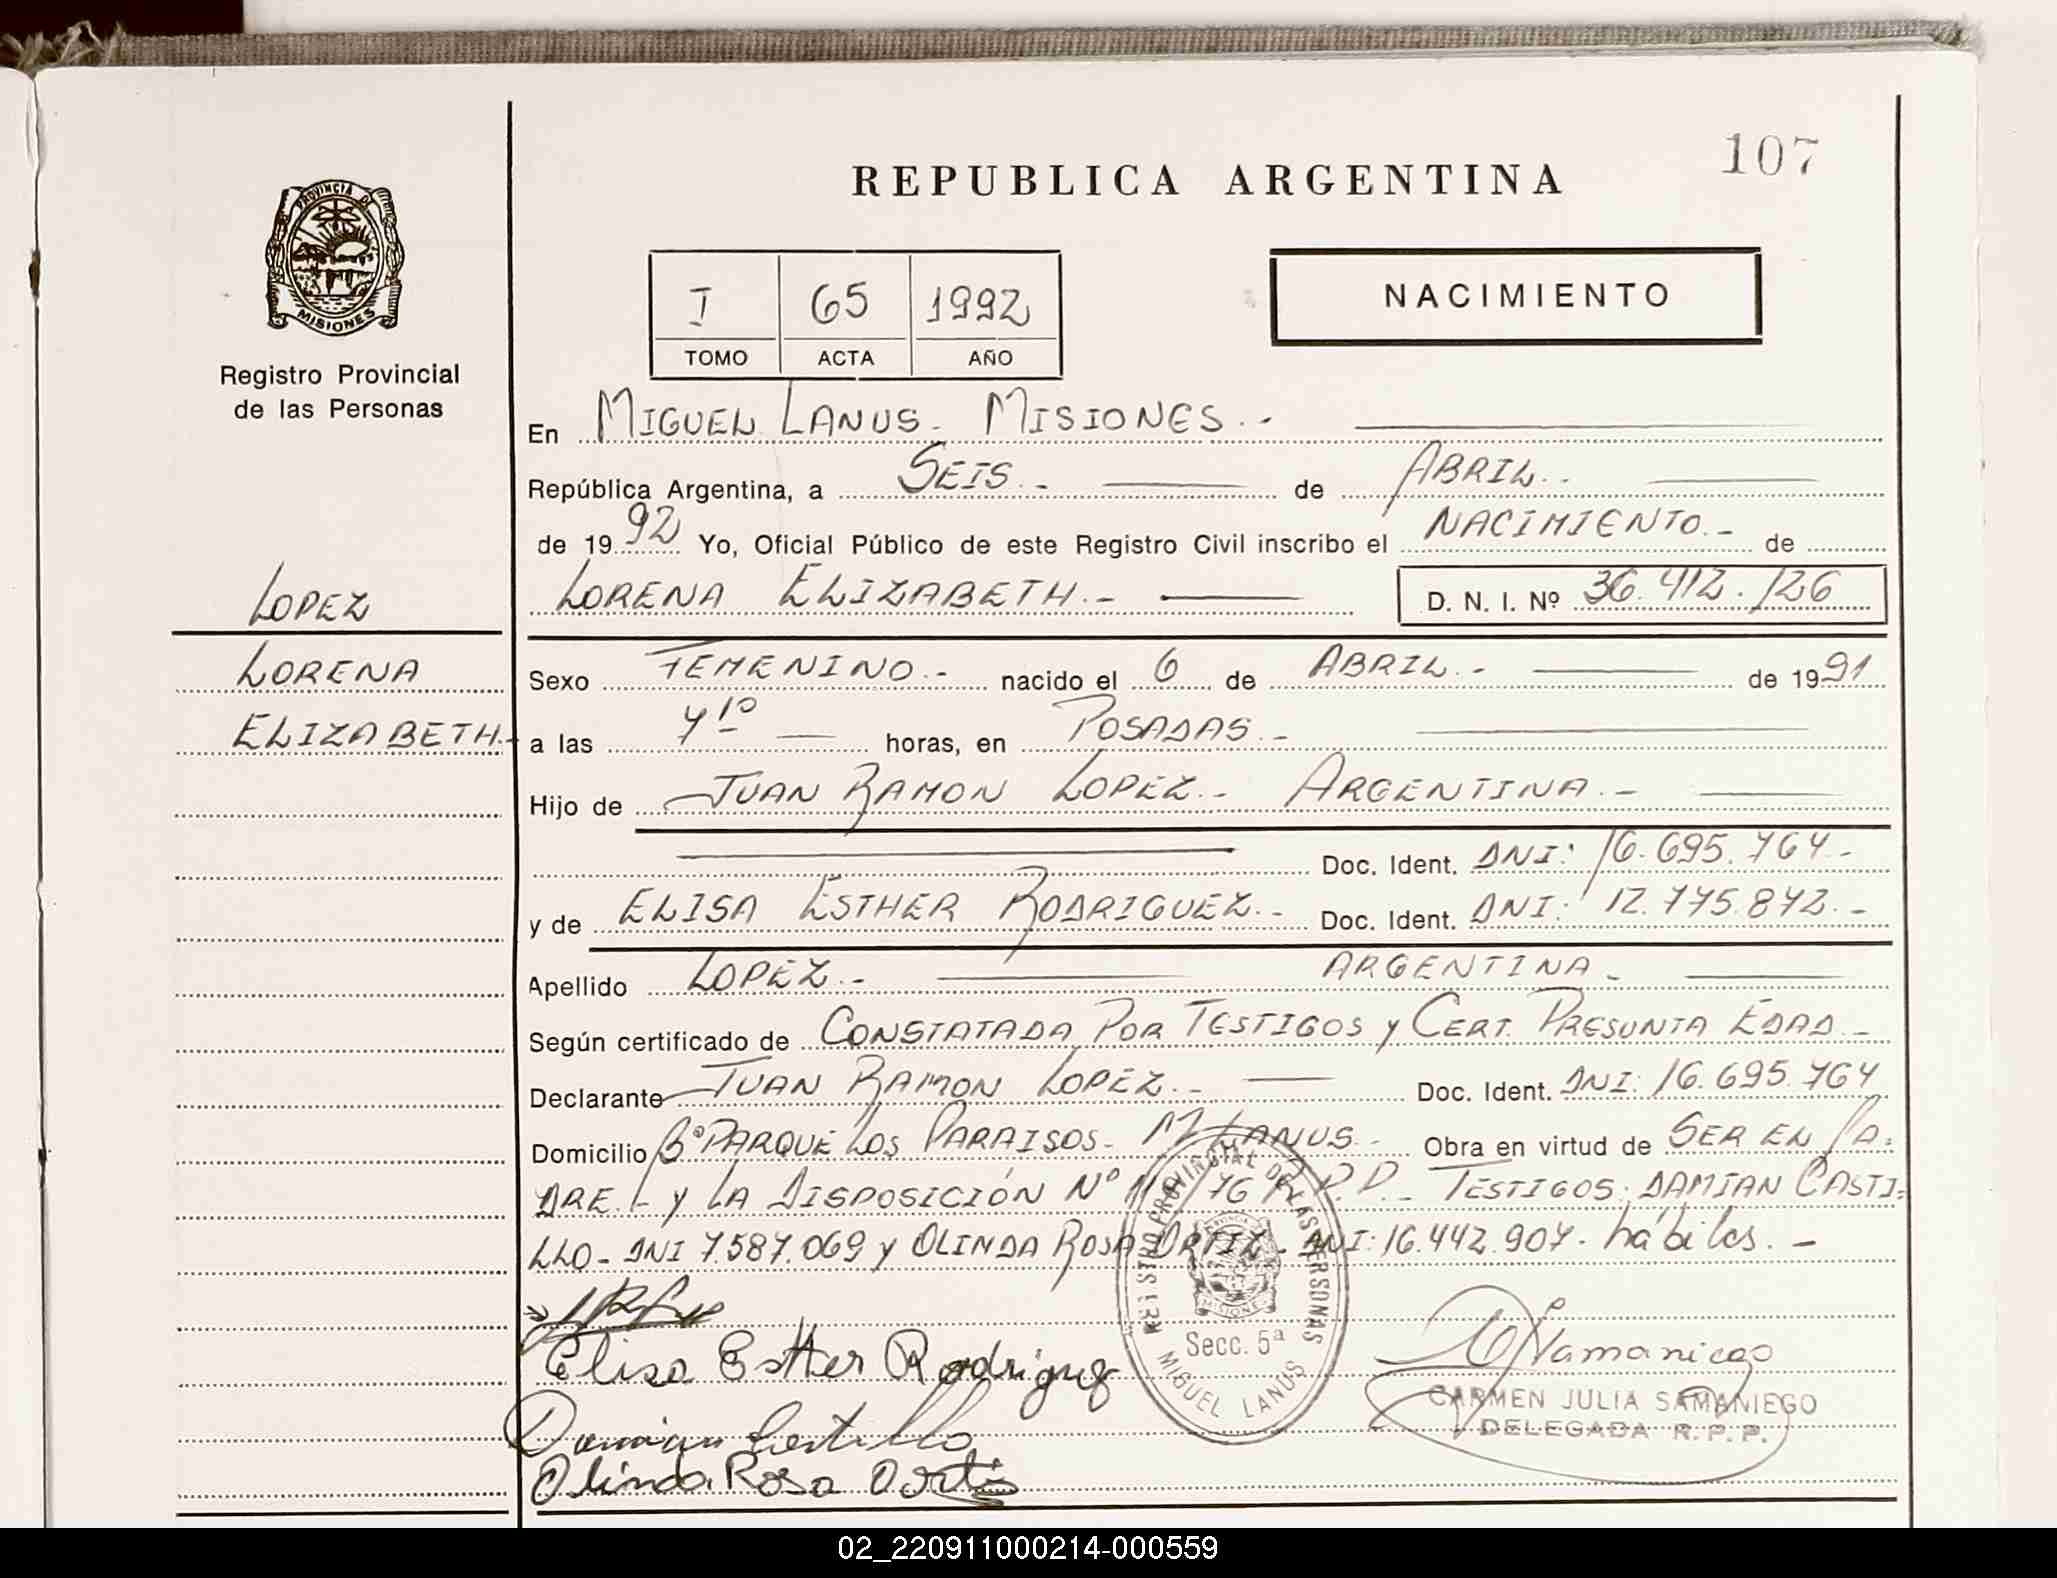 107
REPUBLICA ARGENTINA
PROVINCIA DE
MISIONES
Registro Provincial
de las Personas
NACIMIENTO
I 65 1992
TOMO ACTA AÑO
En MIGUEL LANUS - MISIONES.-
República Argentina, a SEIS.- de ABRIL.-
de 1992 Yo, Oficial Público de este Registro Civil inscribo el NACIMIENTO.- de
LORENA ELIZABETH.- D. N. I. Nº 36.412.126
LOPEZ
LORENA
ELIZABETH.-
Sexo FEMENINO.- nacido el 6 de ABRIL.- de 1991
a las 7 10 horas, en POSADAS.-
Hijo de JUAN RAMON LOPEZ.- ARGENTINA.-
Doc. Ident. DNI: 16.695.764.-
y de ELISA ESTHER RODRIGUEZ.- Doc. Ident. DNI: 12.775.872.-
Apellido LOPEZ.- ARGENTINA.-
Según certificado de CONSTATADA POR TESTIGOS y CERT. PRESUNTA EDAD.-
Declarante JUAN RAMON LOPEZ.- Doc. Ident. DNI: 16.695.764
Domicilio Bº PARQUE LOS PARAISOS - M. LANUS.- Obra en virtud de SER EL PA-
DRE.- y LA DISPOSICIÓN Nº R.P.P.- TESTIGOS: DAMIAN CASTI-
LLO - DNI 7.587.069 y OLINDA ROSA ORTIZ - DNI: 16.442.907. hábiles. -
Elisa Esther Rodriguez
Damian Castillo
Olinda Rosa Ortiz
REGISTRO PROVINCIAL DE LAS PERSONAS
MISIONES
Secc. 5ª
MIGUEL LANUS
Samaniego
CARMEN JULIA SAMANIEGO
DELEGADA R. P. P.
02_220911000214-000559